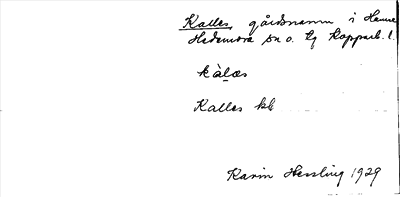 Kalles gårdsnamn i Hamre
Hedemora sn o. tg Kopparb. l.
kàlæs
Kalles kb
Karin Hessling 1929